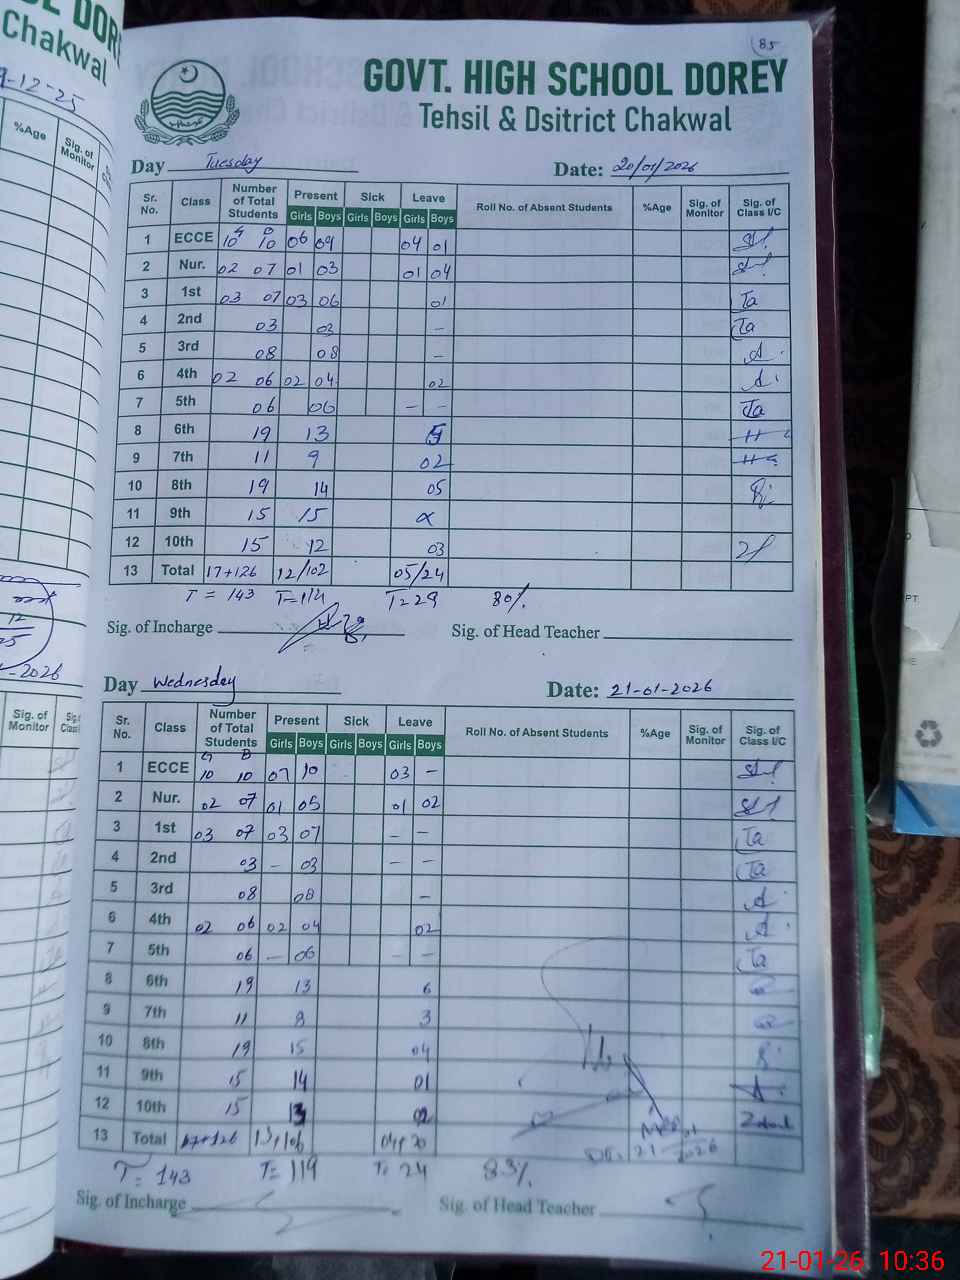 85
GOVT. HIGH SCHOOL DOREY
Tehsil & Dsitrict Chakwal
Day Tuesday Date: 20/01/2026
Sr. No. Class Number of Total Students Present Sick Leave Roll No. of Absent Students %Age Sig. of Monitor Sig. of Class I/C
Girls Boys Girls Boys Girls Boys
G B
1 ECCE 10 10 06 09 04 01
2 Nur. 02 07 01 03 01 04
3 1st 03 07 03 06 01 Ta
4 2nd 03 03 – Ta
5 3rd 08 08 –
6 4th 02 06 02 04 02
7 5th 06 06 – – Ta
8 6th 19 13
9 7th 11 9 02
10 8th 19 14 05
11 9th 15 15 x
12 10th 15 12 03
13 Total 17+126 12/102 05/24
T = 143 T=114 T=29 80%
Sig. of Incharge Sig. of Head Teacher
Day Wednesday Date: 21-01-2026
Sr. No. Class Number of Total Students Present Sick Leave Roll No. of Absent Students %Age Sig. of Monitor Sig. of Class I/C
Girls Boys Girls Boys Girls Boys
G B
1 ECCE 10 10 07 10 03 –
2 Nur. 02 07 01 05 01 02
3 1st 03 07 03 07 – – Ta
4 2nd 03 – 03 – – Ta
5 3rd 08 08 –
6 4th 02 06 02 04 02
7 5th 06 – 06 – – Ta
8 6th 19 13 6
9 7th 11 8 3
10 8th 19 15 04
11 9th 15 14 01
12 10th 15 13 02
13 Total 17+126 13+106
T = 143 T=119 T= 24 83%
Sig. of Incharge Sig. of Head Teacher
DOREY
Chakwal
9-12-25
%Age Sig. of Monitor
-2026
Sig. of Monitor
21-01-26 10:36